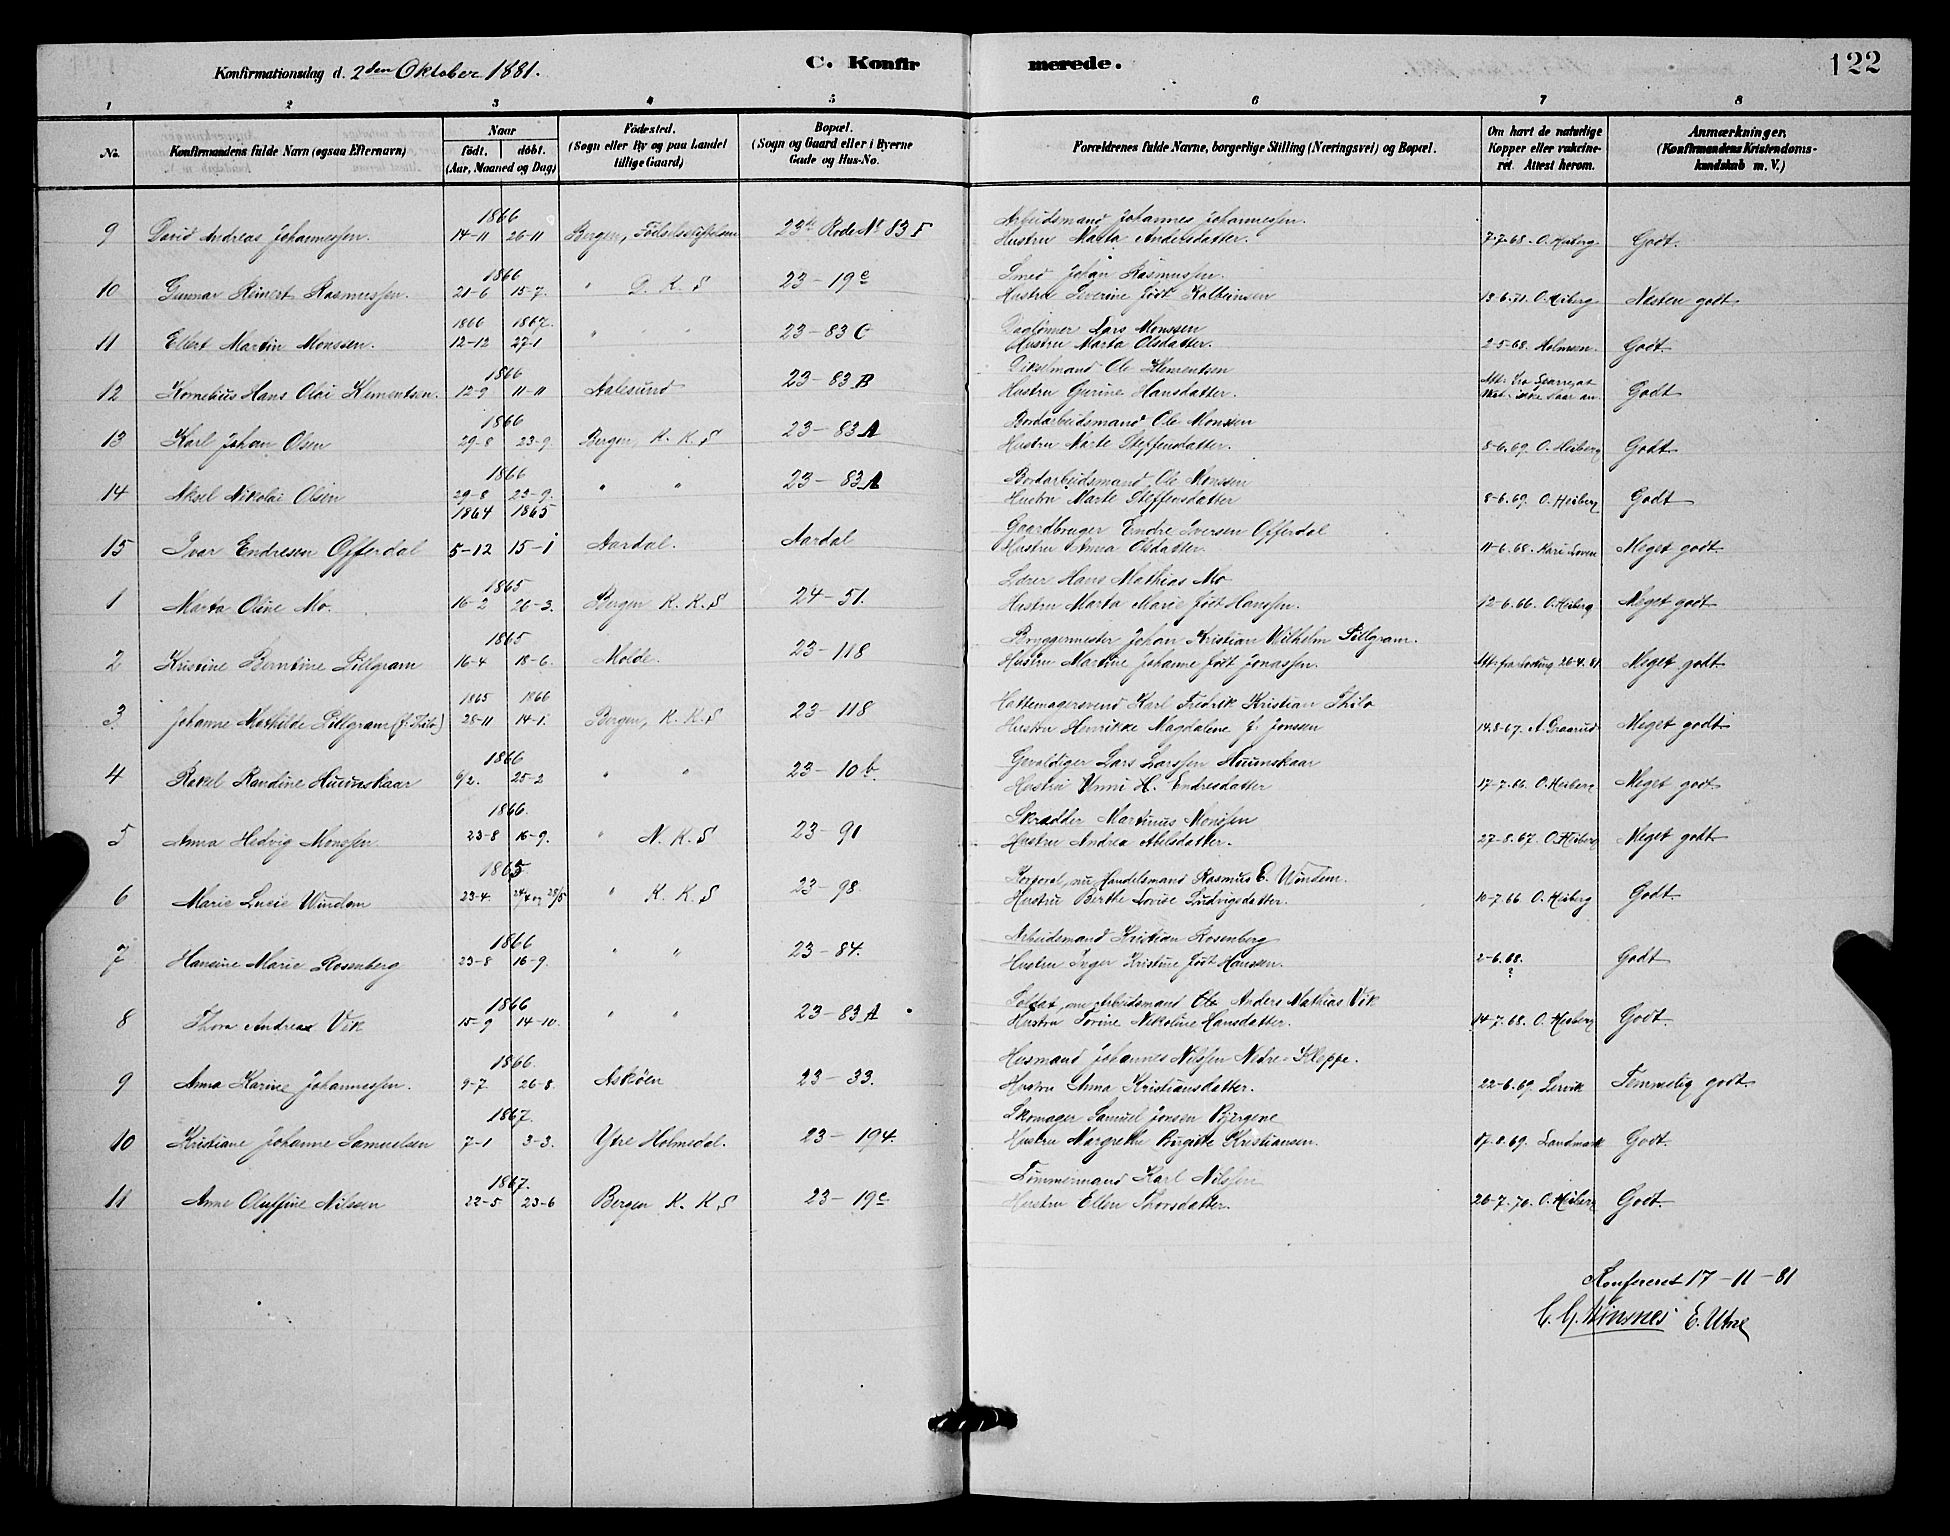 Konfirmationsdag d. 2den Oktober 1881.
C. Konfirmerede.
122
1 2 3 4 5 6 7 8
No.
Konfirmandens fulde Navn (ogsaa Efternavn)
Naar
født. døbt.
(Aar, Maaned og Dag)
Fødested.
(Sogn eller By og paa Landet
tillige Gaard)
Bopæl.
(Sogn og Gaard eller i Byerne
Gade og Hus-No.
Forældrenes fulde Navne, borgerlige Stilling (Næringsvei) og Bopæl.
Om havt de naturlige
Kopper eller vakcine-
ret. Attest herom.
Anmærkninger.
(Konfirmandens Kristendoms-
kundskab m. V.)
1866 Arbeidsmand Johannes Johannessen.
9 David Andreas Johannessen. 14-11 26-11 Bergen, Fødselsstiftelsen 23de Rode No 83 F Hustru Marta Andersdatter. 7-7-68. O. Heiberg Godt.
1866 Smed Johan Rasmussen.
10 Gunnar Reinert Rasmussen. 21-6 15-7. " D. K. S 23-19c Hustru Severine født Kolbeinsen 13-6.71. O. Heiberg Næsten godt
1866 1867. Daglønner Lars Monssen
11 Elert Martin Monssen. 12-12 27-1 " " " 23-83 C Hustru Marta Olsdatter. 2-5-68. Holmsen. Godt.
1866 Dikselmand Ole Klementsen
12 Kornelius Hans Olai Klementsen. 12-9 11-11 Aalesund 23-83 B Hustru Gurine Hansdatter. Godt
1866 Bordarbeidsmand Ole Monssen
13 Karl Johan Olsen 29-8 23-9. Bergen K. K. S 23-83 A Hustru Marte Steffensdatter. 8-6.69. O. Heiberg Godt
1866 Bordarbeidsmand Ole Monssen
14 Aksel Nikolai Olsen 29-8 23-9. " " 23-83 A Hustru Marte Steffensdatter 8-6.69. O. Heiberg Godt
1864 1865 Gaardbruger Endre Iversen Offerdal
15 Ivar Endresen Offerdal 5-12 15-1 Aardal. Aardal Hustru Anna Olsdatter. 11-6.68. Kari Loven Meget godt
1865 Lærer Hans Mathias Mo
1 Marta Oline Mo. 16-2 26-3. Bergen K. K. S 24-51. Hustru Marta Marie født Hanssen. 12-6.66. O. Heiberg Meget godt
1865 Bryggermester Johan Kristian Wilhelm Pillgram.
2 Kristine Berntine Pillgram 16-4 18-6. Molde. 23-118 Hustru Martine Johanne født Jonassen. 26-4.81 Meget godt
1865 1866 Hattemagersvend Karl Fredrik Kristian Thilo
3 Johanne Mathilde Pillgram (f. Thilo) 28-11 14-1. Bergen, K. K. S 23-118 Hustru Henrikke Magdalene f. Jonsen 14.8-67. A. Graarud Meget godt
1866 Gevaldiger Lars Larssen Huunskaar
4 Rakel Randine Huunskaar 9/2. 25-2 " " 23-10 b. Hustru Unni H. Endresdatter 17-7.66. O. Heiberg Meget godt
1866. Skrædder Martinus Monssen
5 Anna Hedvig Monssen 23-8 16-9. " N. K. S 23-91 Hustru Andrea Abelsdatter. 27-8.67. O. Heiberg Meget godt
1865 Korporal, nu Handelsmand Rasmus E. Windem.
6 Marie Lucie Windem 23-4. 24/4 og 28/5 " K. K. S 23-98 Hustru Berthe Lovise Ludvigsdatter. 10-7.66 O. Heiberg Godt.
1866 Arbeidsmand Kristian Rosenberg
7 Hansine Marie Rosenberg 23-8 16-9. " " 23-84. Hustru Inger Kristine født Hanssen. 2-6.68. ? Godt
1866 Soldat, nu Arbeidsmand Ole Anders Mathias Vik
8 Thora Andrea Vik 15-9 14-10. " " 23-83 A Hustru Torine Nikoline Hansdatter. 14-7.68. O. Heiberg Godt.
1866. Husmand Johannes Nilssen Nedre-Kleppe.
9 Anna Karine Johannessen. 9-7 26-8. Askøen 23-33. Hustru Anna Kristiansdatter. 22-6.69. Lervik Temmelig godt
1867. Skomager Samuel Jonsen Bjergene
10 Kristiane Johanne Samuelsen 7-1 3-3. Ytre Holmedal. 23-194. Hustru Margrethe Birgitte Kristiansen. 17-8.69. Landmark Godt.
1867. Tømmermand Karl Nilssen
11 Anne Oluffine Nilssen 22-5 23-6 Bergen K. K. S 23-19c Hustru Ellen Thorsdatter. 26-7.70. O. Heiberg Godt.
Konfereret 17-11-81
E. Utne